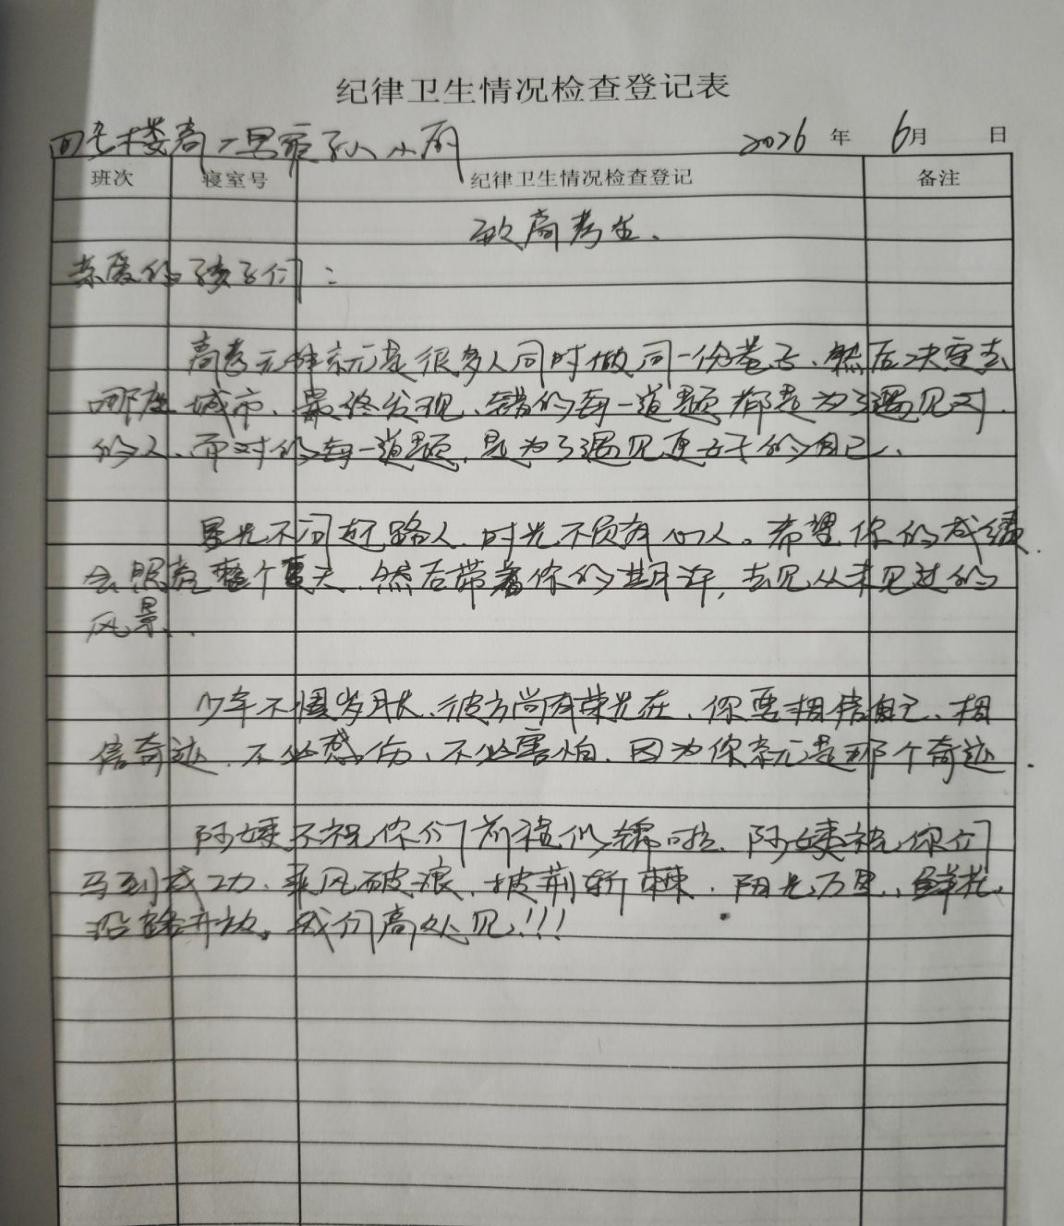 纪律卫生情况检查登记表
四号楼高二男寝孙小雨 2026年 6月 日
班次 寝室号 纪律卫生情况检查登记 备注
致高考生.
亲爱的孩子们:
高考无非就是很多人同时做同一份卷子、然后决定去
哪座城市、最终发现、错的每一道题都是为了遇见对
的人、而对的每一道题,是为了遇见更好的自己、
星光不问赶路人,时光不负有心人。希望你的成绩
会照亮整个夏天,然后带着你的期许,去见从未见过的
风景..
少年不惧岁月长、彼方尚有荣光在、你要相信自己、相
信奇迹、不必感伤、不必害怕、因为你就是那个奇迹.
阿姨不祝你们前程似锦啦、阿姨祝你们
马到成功、乘风破浪、披荆斩棘、阳光万里、鲜花
沿路开放。我们高处见!!!